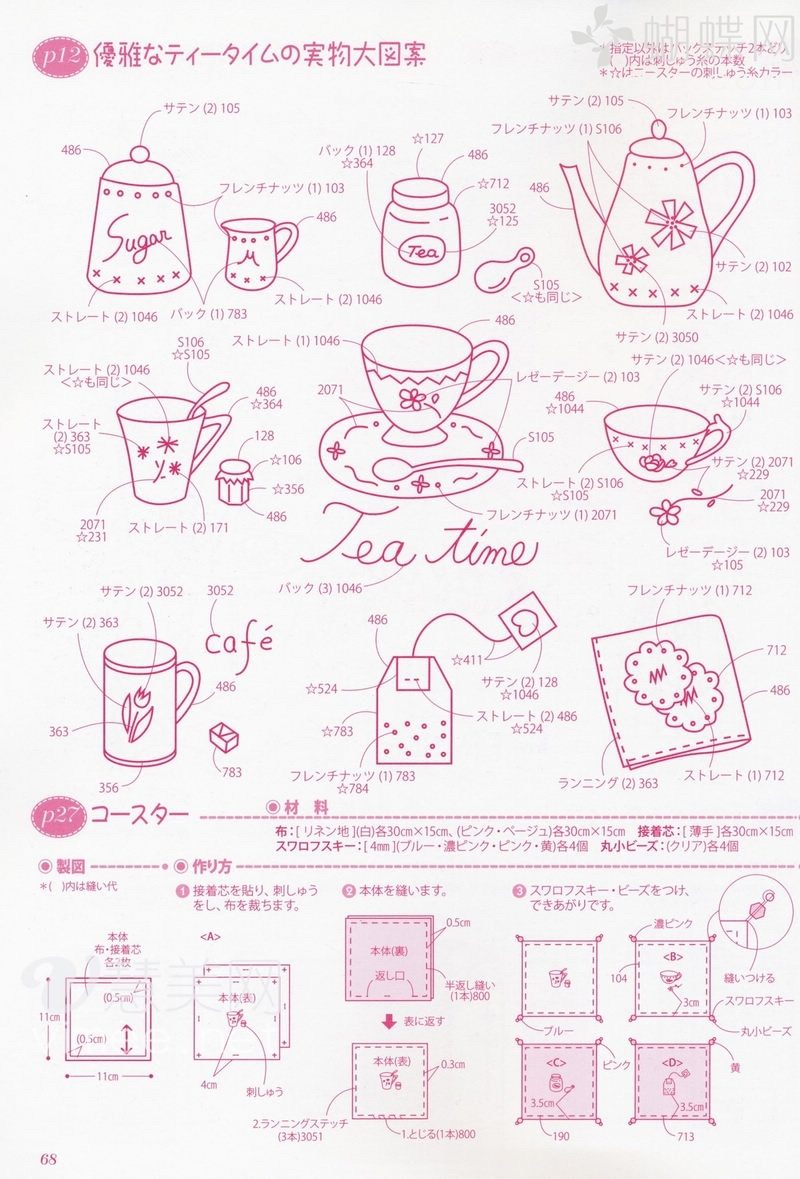 p12 優雅なティータイムの実物大図案
*指定以外はバックステッチ2本どり
( )内は刺しゅう糸の本数
*☆はコースターの刺しゅう糸カラー
蝴蝶网
サテン (2) 105
486
フレンチナッツ (1) 103
486
Sugar
M
ストレート (2) 1046
バック (1) 783
ストレート (2) 1046
☆127
バック (1) 128
☆364
486
☆712
3052
☆125
Tea
S105
<☆も同じ>
サテン (2) 105
フレンチナッツ (1) 103
フレンチナッツ (1) S106
486
サテン (2) 102
ストレート (2) 1046
サテン (2) 3050
S106
☆S105
ストレート (2) 1046
<☆も同じ>
486
☆364
ストレート
(2) 363
☆S105
128
☆106
☆356
486
2071
☆231
ストレート (2) 171
ストレート (1) 1046
486
2071
レゼーデージー (2) 103
S105
フレンチナッツ (1) 2071
サテン (2) 1046<☆も同じ>
486
☆1044
サテン (2) S106
☆1044
ストレート (2) S106
☆S105
サテン (2) 2071
☆229
2071
☆229
レゼーデージー (2) 103
☆105
Tea time
バック (3) 1046
サテン (2) 3052
3052
サテン (2) 363
café
486
363
356
783
486
☆411
☆524
サテン (2) 128
☆1046
ストレート (2) 486
☆524
☆783
フレンチナッツ (1) 783
☆784
フレンチナッツ (1) 712
712
486
ランニング (2) 363
ストレート (1) 712
p27 コースター
材 料
布：[ リネン地 ](白)各30cm×15cm、(ピンク・ベージュ)各30cm×15cm 接着芯：[ 薄手 ]各30cm×15cm
スワロフスキー：[ 4mm ](ブルー・濃ピンク・ピンク・黄)各4個 丸小ビーズ：(クリア)各4個
製図
作り方
*( )内は縫い代
本体
布・接着芯
各2枚
(0.5cm)
(0.5cm)
11cm
11cm
1 接着芯を貼り、刺しゅう
をし、布を裁ちます。
<A>
本体(表)
4cm
刺しゅう
2 本体を縫います。
0.5cm
本体(裏)
返し口
半返し縫い
(1本)800
表に返す
本体(表)
0.3cm
2.ランニングステッチ
(3本)3051
1.とじる(1本)800
3 スワロフスキー・ビーズをつけ、
できあがりです。
濃ピンク
<B>
104
3cm
縫いつける
スワロフスキー
丸小ビーズ
ブルー
ピンク
黄
<C>
3.5cm
190
<D>
3.5cm
713
慧美网
68